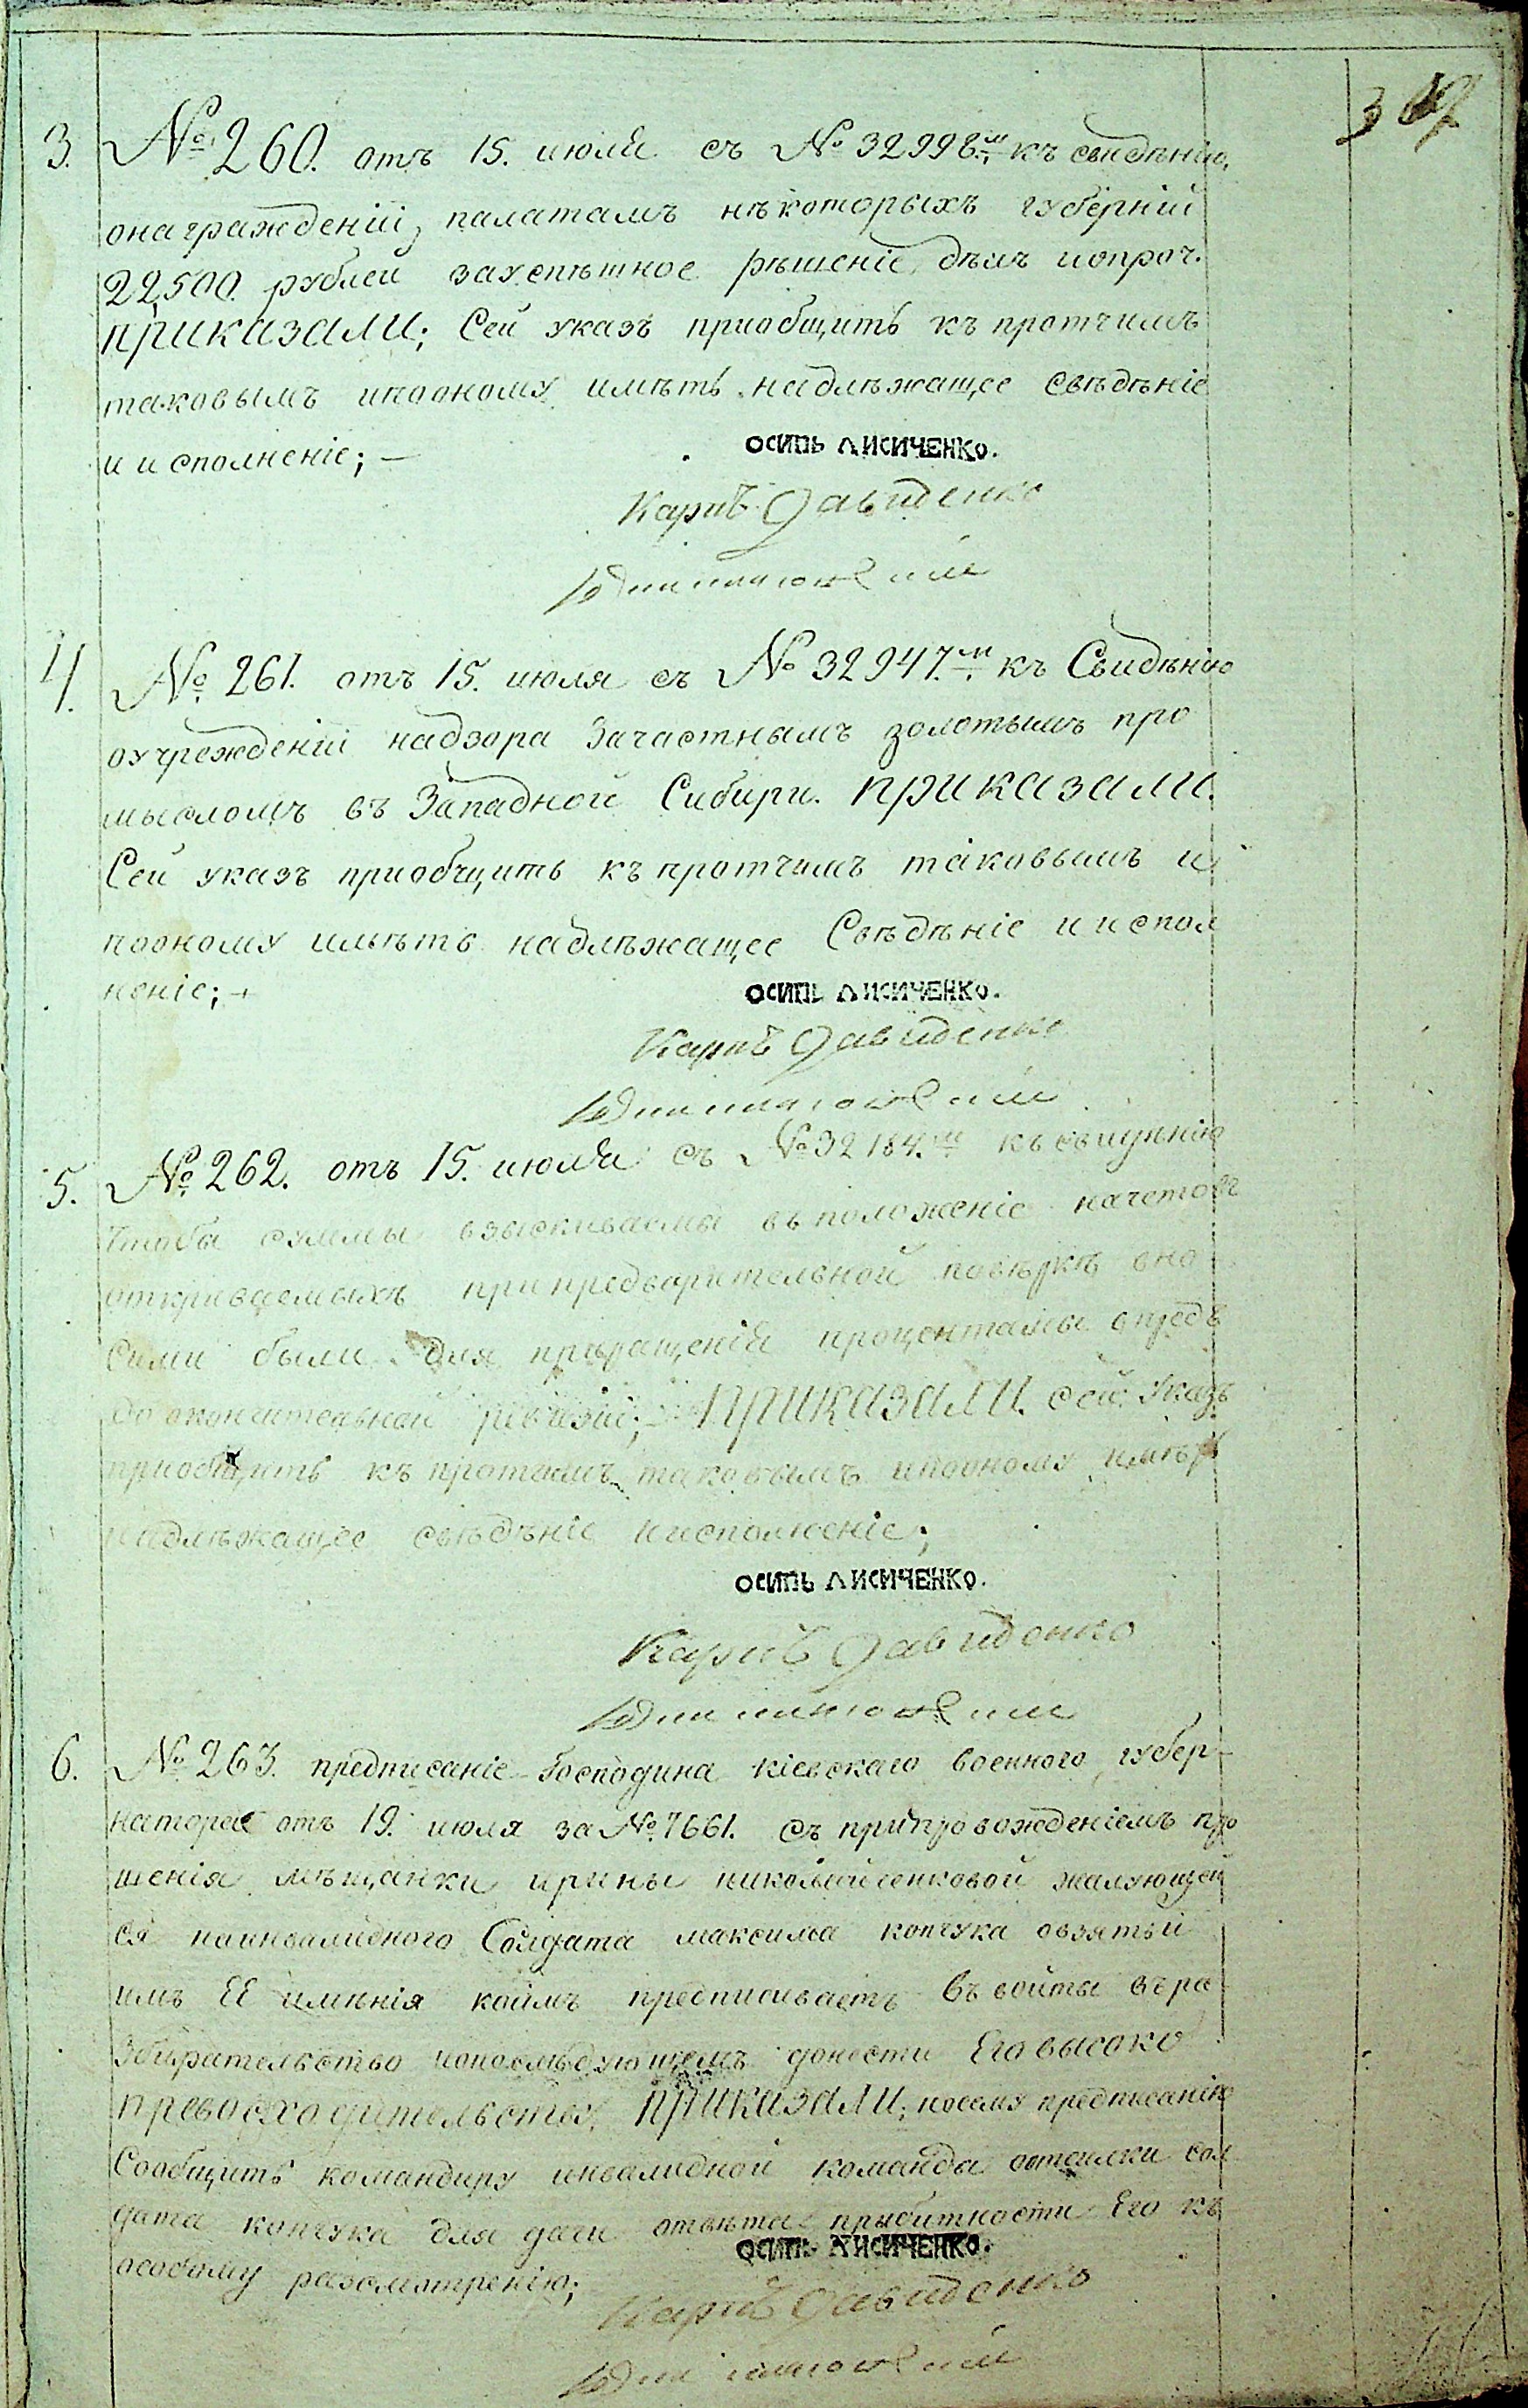 3.
№ 260. отъ 15. июля съ № 32998.м къ свидѣнию,
онагражденіи, палатамъ нѣкоторыхъ губерній
22,500. рублей зауспѣшное рѣшеніе дѣлъ ипроч.
приказали; Сей указъ приобщить къ протчимъ
таковымъ ипооному имѣть надлѣжащее свѣдѣніе
и исполненіе; —
Осипъ Лисиченко.
Карпъ Давиденко
4.
№ 261. отъ 15. июля съ № 32947.м къ Свидѣнию
оучрежденіи надзора Зачастнымъ золотымъ про
мысломъ въ Западной Сибири. приказали.
Сей указъ приобщить къ протчимъ таковымъ и
пооному имѣть надлѣжащее Свѣдѣніе и испол
неніе; —
Осипъ Лисиченко.
Карпъ Давиденко
5.
№ 262. отъ 15. июля съ № 32184.м къ свидѣнию
чтобы суммы взыскиваемы въ положеніе начетовъ
открываемыхъ при предварительной повѣркѣ вно
сими были для приращенія процентамы впредъ
до окончательной ревизіи; — приказали. сей Указъ
приобщить къ протчимъ таковымъ ипооному имѣть
надлѣжащее свѣдѣніе и исполненіе;
Осипъ Лисиченко.
Карпъ Давиденко
6.
№ 263. предписаніе Господина кіевскаго военного губер-
натора отъ 19. июля за № 7661. съ припровожденіемъ про
шенія мѣщанки ирины жалующей
ся наинвалидного Солдата максима копчука овзятьи
имъ ЕЯ имѣнія коимъ предписиваетъ въ войты въ ра
збирательство ипослѣдующемъ донести Его высоко
превосходительству, приказали; посему предписанію
Сообщить командиру инвалидной команды оотсилки сол
дата копчука для дачи отвѣта прыбитности Его къ
особому разсмотренію;
Осипъ Лисиченко.
Карпъ Давиденко